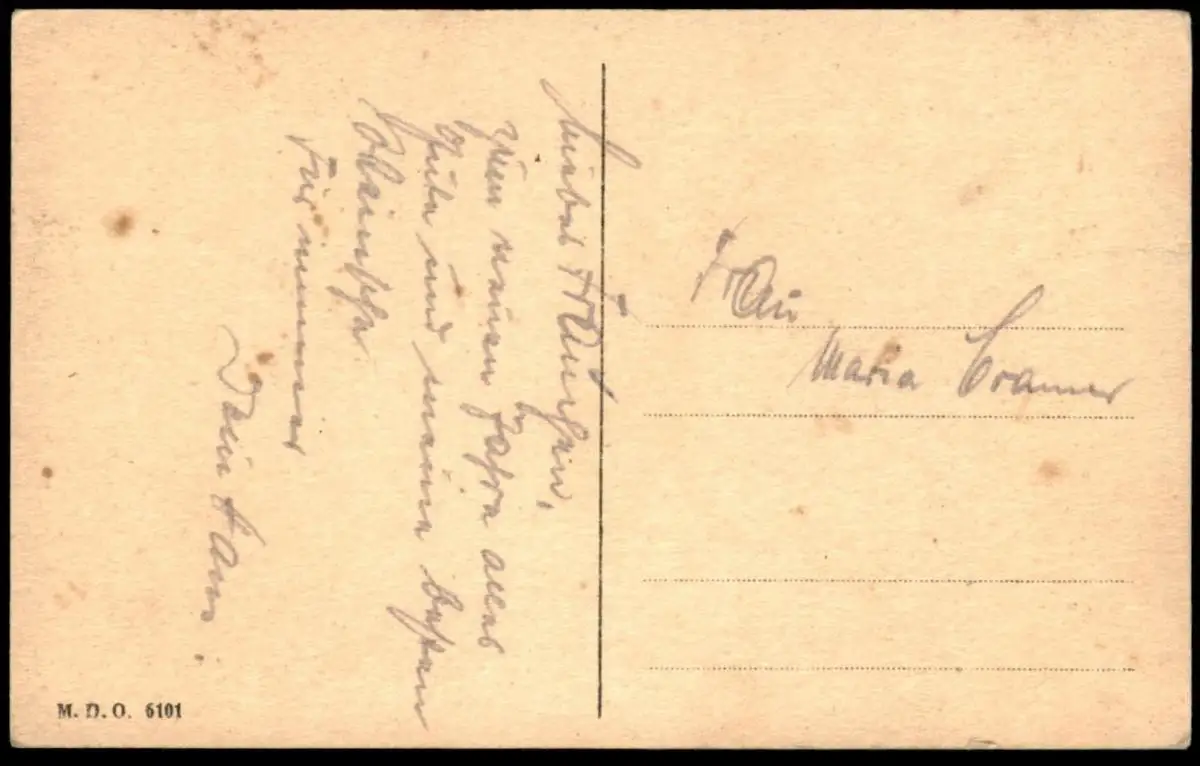 Liebes Frauchen,
zum neuen Jahre alles
Gute und meine besten
Wünsche.
Für immer
Dein Hans.
Frau
Maria Cramer
M. D. O. 6101